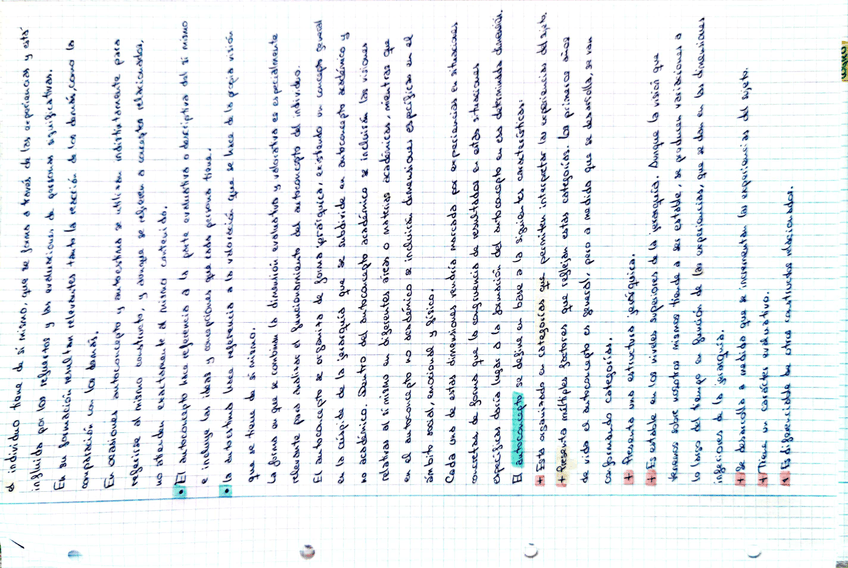 el individuo tiene de sí mismo, que se forma a través de las experiencias y está
influida por los refuerzos y las evaluaciones de personas significativas.
En su formación resultan relevantes tanto la reacción de los demás, como la
comparación con los demás.
En ocasiones autoconcepto y autoestima se utilizan indistintamente para
referirse al mismo constructo, y aunque se refieren a conceptos relacionados,
no atienden exactamente al mismo contenido.
• El autoconcepto hace referencia a la parte evaluativa o descriptiva del sí mismo
e incluye las ideas y concepciones que cada persona tiene.
• La autoestima hace referencia a la valoración que se hace de la propia visión
que se tiene de sí mismo.
La forma en que se combinan la dimensión evaluativa y valorativa es especialmente
relevante para analizar el funcionamiento del autoconcepto del individuo.
El autoconcepto se organiza de forma jerárquica, existiendo un concepto general
en la cúspide de la jerarquía que se subdivide en autoconcepto académico y
no académico. Dentro del autoconcepto académico se incluirían las visiones
relativas al sí mismo en diferentes áreas o materias académicas, mientras que
en el autoconcepto no académico se incluirían dimensiones específicas en el
ámbito social, emocional y físico.
Cada una de estas dimensiones vendría marcada por experiencias en situaciones
concretas, de forma que la congruencia de resultados en estas situaciones
específicas daría lugar a la formación del autoconcepto en esa determinada dimensión.
El autoconcepto se define en base a la siguientes características:
+ Está organizado en categorías que permiten interpretar las experiencias del sujeto.
+ Presenta múltiples factores que reflejan estas categorías. Los primeros años
de vida el autoconcepto es general, pero a medida que se desarrolla, se van
conformando categorías.
+ Presenta una estructura jerárquica.
+ Es estable en los niveles superiores de la jerarquía. Aunque la visión que
tenemos sobre nosotros mismos tiende a ser estable, se producen variaciones a
lo largo del tiempo en función de las experiencias, que se dan en las dimensiones
inferiores de la jerarquía.
+ Se desarrolla a medida que se incrementan las experiencias del sujeto.
+ Tiene un carácter evaluativo.
+ Es diferenciable de otros constructos relacionados.